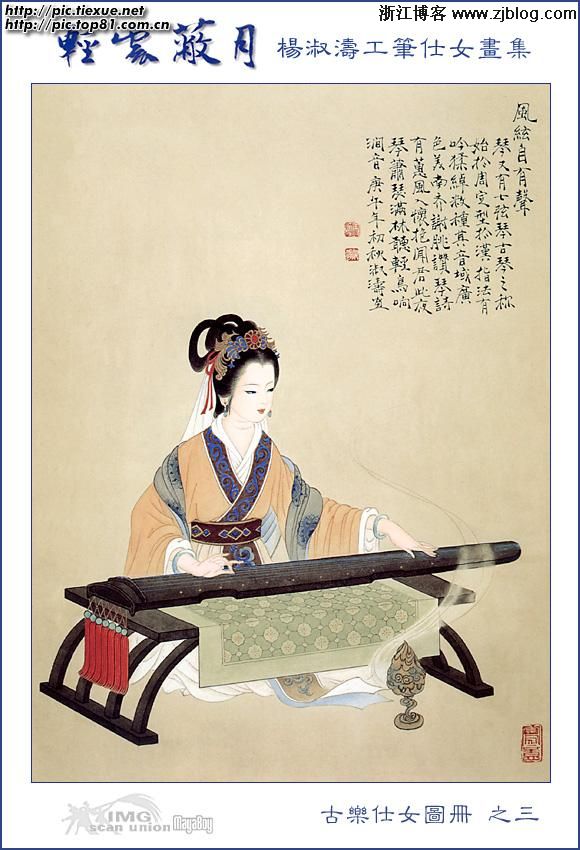 http://pic.tiexue.net
http://pic.top81.com.cn
浙江博客 www.zjblog.com
輕雲蔽月 楊淑濤工筆仕女畫集
風絃自有聲
琴又有七弦琴古琴之称
始於周定型於漢指法有
吟猱綽数種其音域廣
色美南齐謝朓讚琴詩
有蕙風入懷抱聞君此夜
琴蕭瑟滿林聽輕鳥响
澗音庚午年初秋淑濤畫
IMG
scan union MayaBoy
古樂仕女圖冊 之三